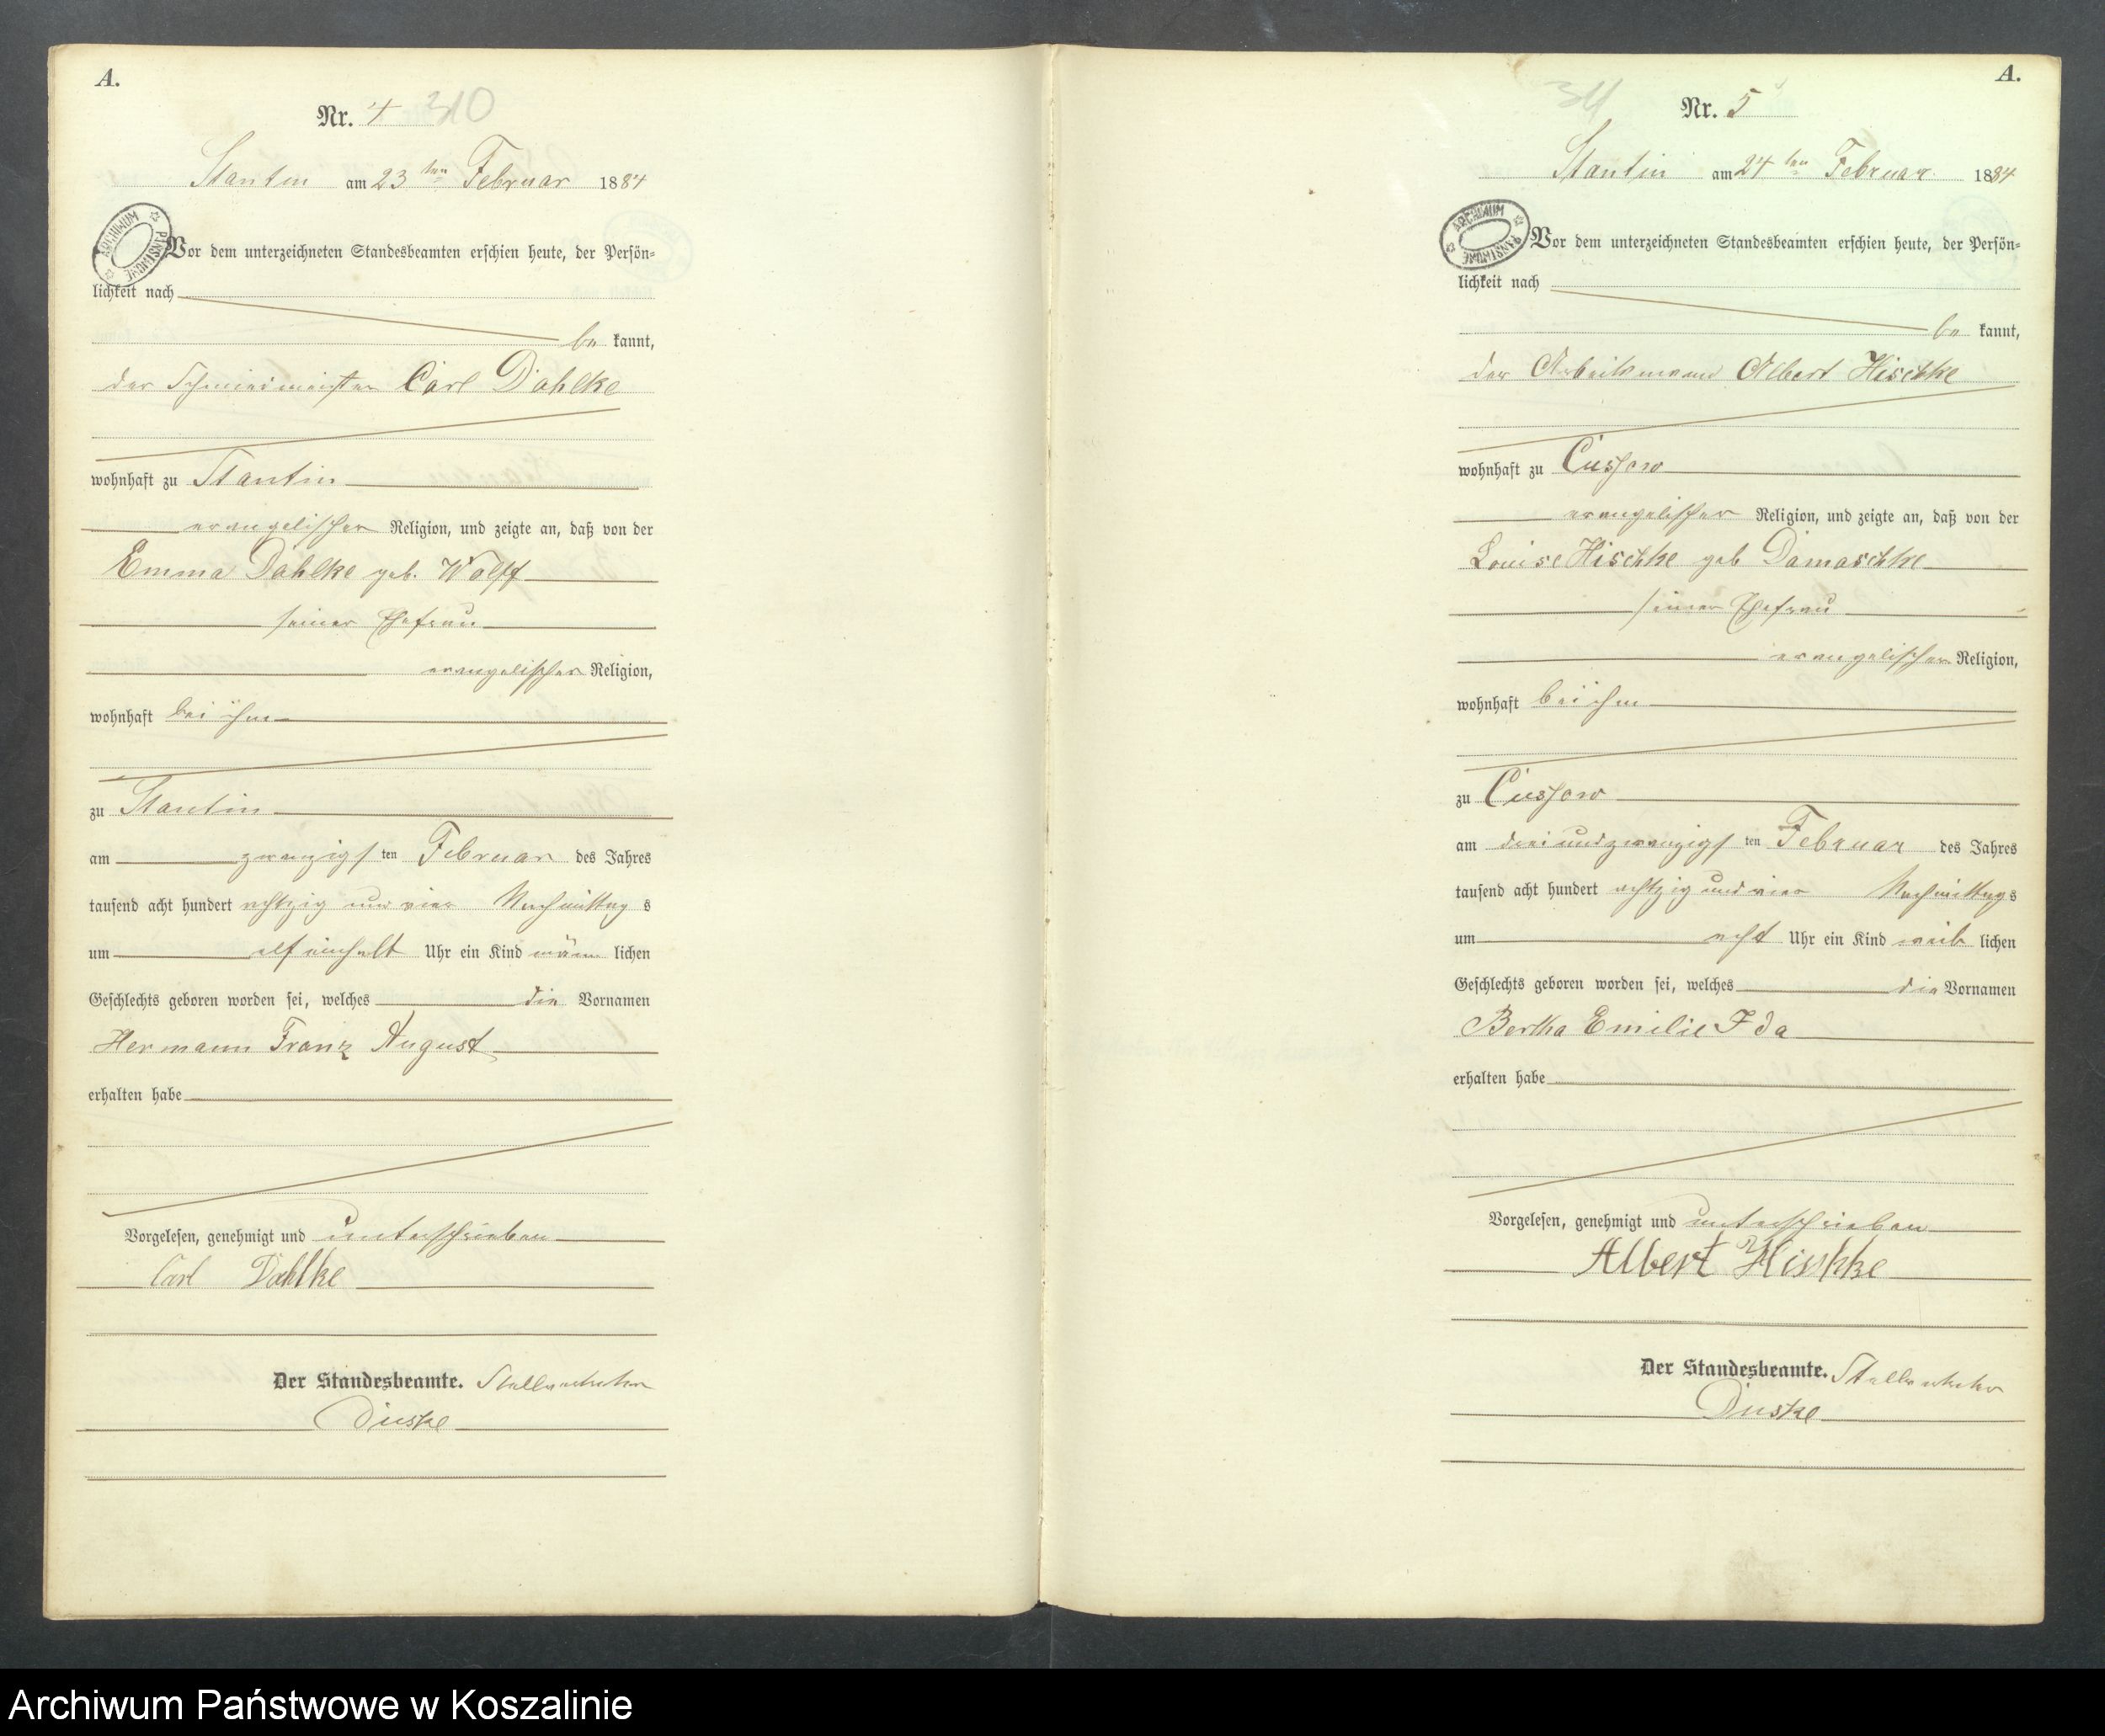 A.
Nr. 4 310
Stantin am 23ten Februar 1884
Vor dem unterzeichneten Standesbeamten erschien heute, der Persön-
lichkeit nach
be kannt,
der Schmiedmeister Carl Dahlke
wohnhaft zu Stantin
evangelischer Religion, und zeigte an, daß von der
Emma Dahlke geb. Wolff
seiner Ehefrau
evangelischer Religion,
wohnhaft bei ihm
zu Stantin
am zwanzigsten Februar des Jahres
tausend acht hundert achtzig und vier Nachmittags
um elf einhalb Uhr ein Kind männlichen
Geschlechts geboren worden sei, welches die Vornamen
Hermann Franz August
erhalten habe
Vorgelesen, genehmigt und unterschrieben
Carl Dahlke
Der Standesbeamte. Stellvertreter
ARCHIWUM PAŃSTWOWE
A.
311 Nr. 5
Stantin am 24ten Februar 1884
Vor dem unterzeichneten Standesbeamten erschien heute, der Persön-
lichkeit nach
be kannt,
der Arbeitsmann Albert Hischke
wohnhaft zu Cussow
evangelischer Religion, und zeigte an, daß von der
Louise Hischke geb Damaschke
seiner Ehefrau
evangelischer Religion,
wohnhaft bei ihm
zu Cussow
am dreiundzwanzigsten Februar des Jahres
tausend acht hundert achtzig und vier Nachmittags
um acht Uhr ein Kind weiblichen
Geschlechts geboren worden sei, welches die Vornamen
Bertha Emilie Ida
erhalten habe
Vorgelesen, genehmigt und unterschrieben
Albert Hischke
Der Standesbeamte. Stellvertreter
ARCHIWUM PAŃSTWOWE
Archiwum Państwowe w Koszalinie